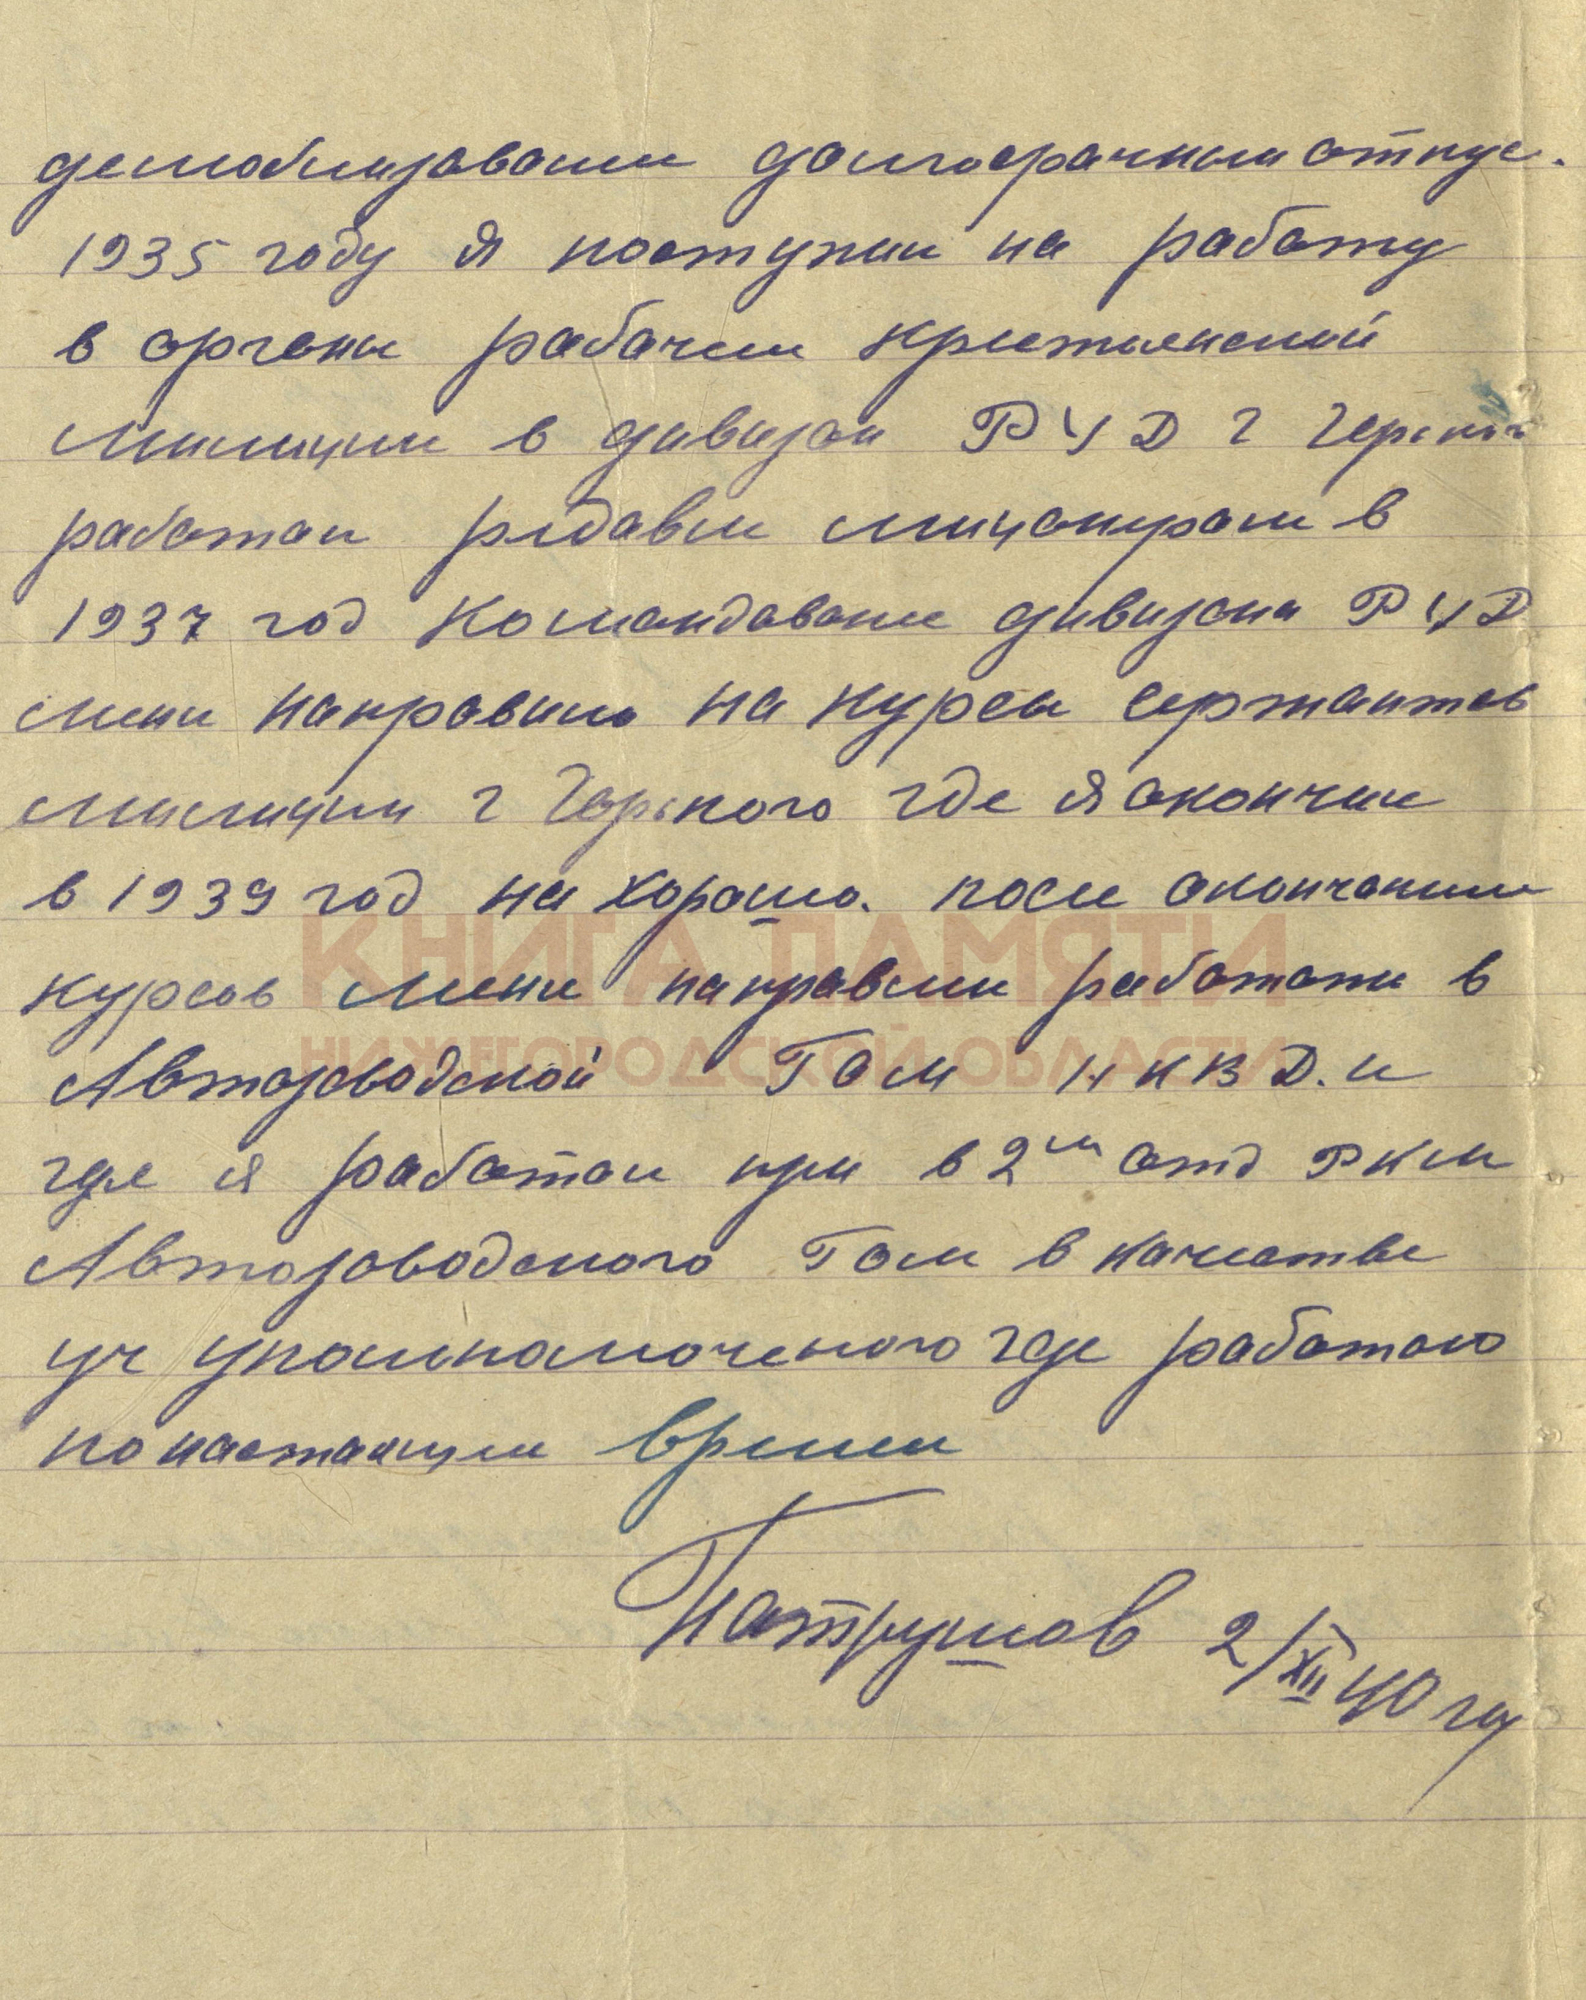 демобилизовали долгосрачный отпус.
1935 году я поступил на работу
в органы рабочем крестьянской
милиции в дивизон РУД г Горького
работал редавм милционром в
1937 год командование дивизона РУД
мени направило на курсы сержантов
милиции г Горького где я окончил
в 1939 год на хорошо. посли окончании
курсов мени направили работать в
Автозоводской ГОМ НКВД. и
где я работал при в 2м отд РКМ
Автозоводского Гом в качестве
уч уполнамоченого где работаю
по настаящем время
Патрушов 2/XII 40 гу
КНИГА ПАМЯТИ
НИЖЕГОРОДСКОЙ ОБЛАСТИ